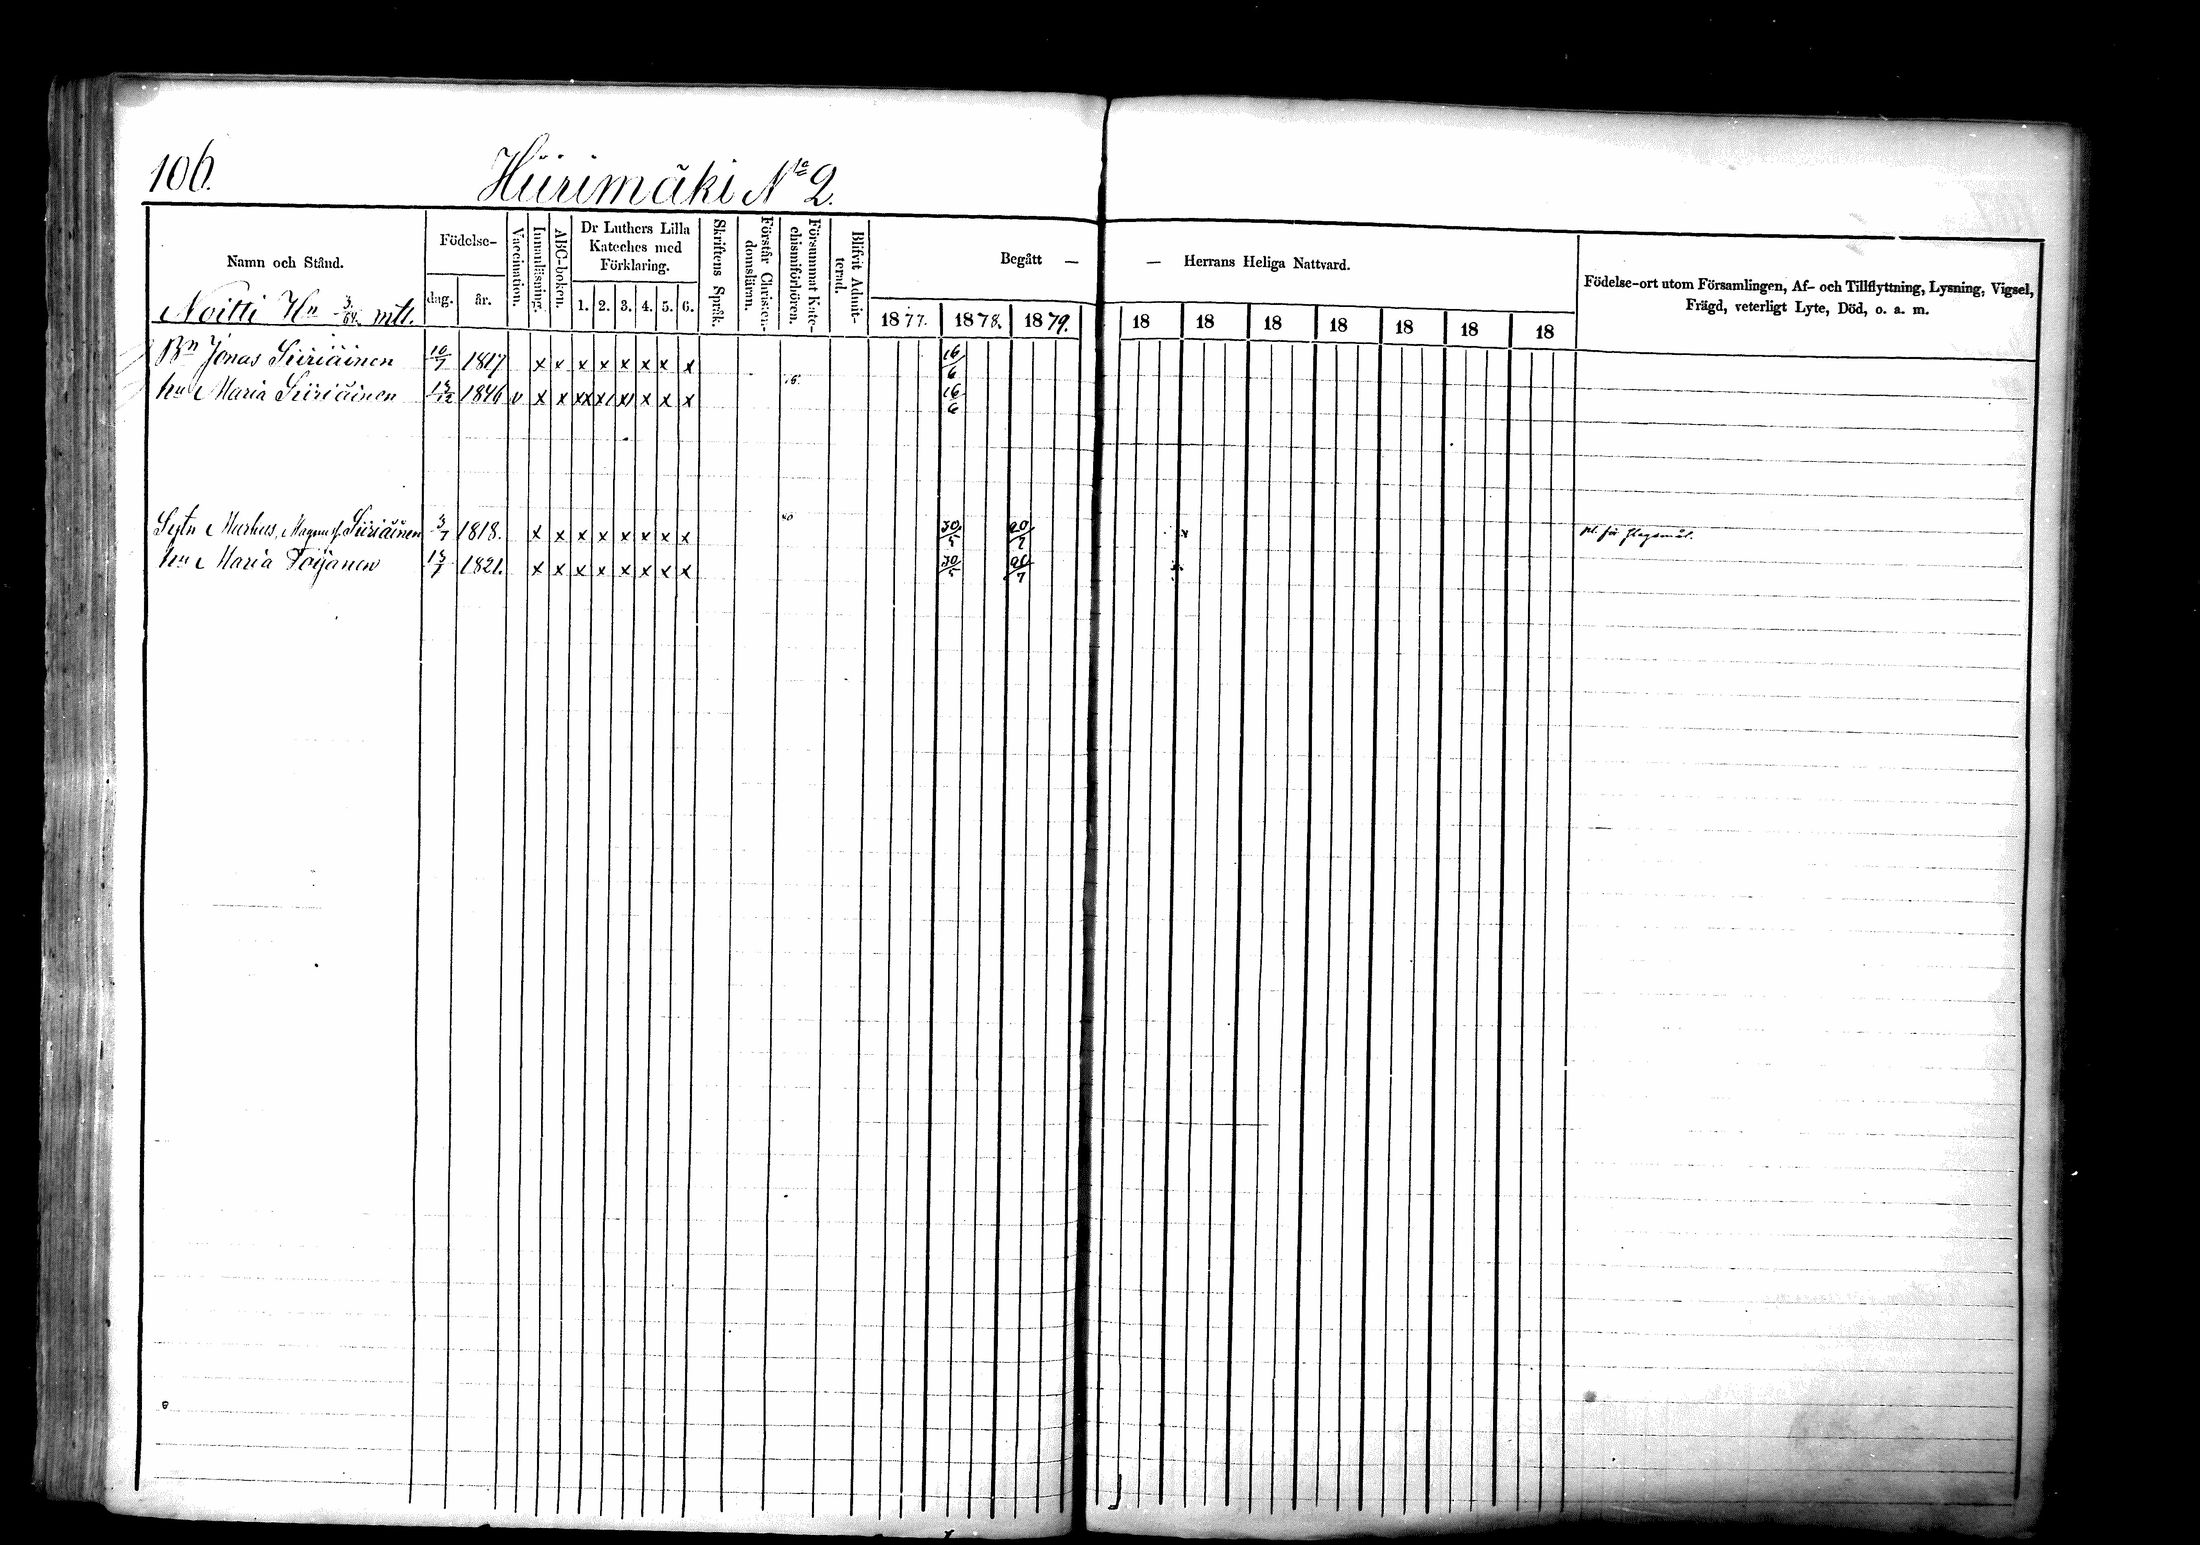 106.
Hiirimäki No 2.
Namn och Stånd.
Födelse-
dag.
år.
Vaccination.
Innanläsning.
ABC-boken.
Dr Luthers Lilla
Kateches med
Förklaring.
1. 2. 3. 4. 5. 6.
Skriftens Språk.
Förstår Christen-
domsläran.
Försummat Kate-
chismiförhören.
Blifvit Admit-
terad.
Begått — — Herrans Heliga Nattvard.
1877. 1878. 1879. 18 18 18 18 18 18 18
Födelse-ort utom Församlingen, Af- och Tillflyttning, Lysning, Vigsel,
Frägd, veterligt Lyte, Död, o. a. m.
Noitti Hn 3/64 mtl.
Bn Jonas Siiriäinen 10/7 1817 x x x x x x x x 16/6
hu Maria Siiriäinen 1846 v x x xx x x x x x 16/6
Markus, Magnus s. Siiriäinen 3/7 1818. x x x x x x x x 30/5 20/7 x
hu Maria 1821. x x x x x x x x 30/5 20/7